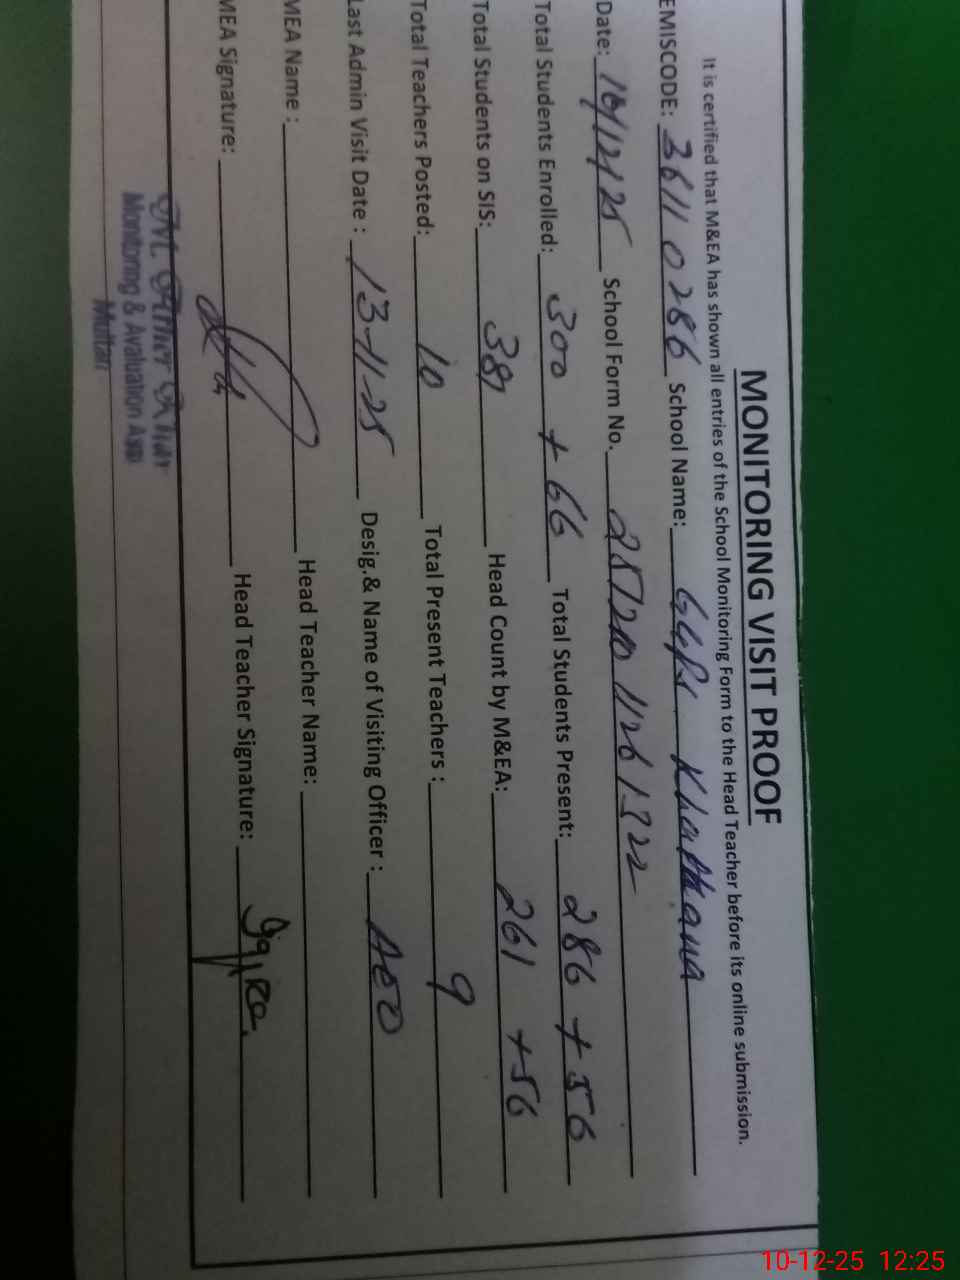 MONITORING VISIT PROOF
It is certified that M&EA has shown all entries of the School Monitoring Form to the Head Teacher before its online submission.
EMISCODE: 36110286 School Name: GGPS
Date: 10/12/25 School Form No.
Total Students Enrolled: 300 + 66 Total Students Present: 286 + 56
Total Students on SIS: 381 Head Count by M&EA: 261 + 56
Total Teachers Posted: 10 Total Present Teachers : 9
Last Admin Visit Date : 13-11-25 Desig.& Name of Visiting Officer : AEO
MEA Name : Head Teacher Name:
MEA Signature: Head Teacher Signature: Iqra.
Monitoring & Avaluation Assi
Multan
10-12-25 12:25